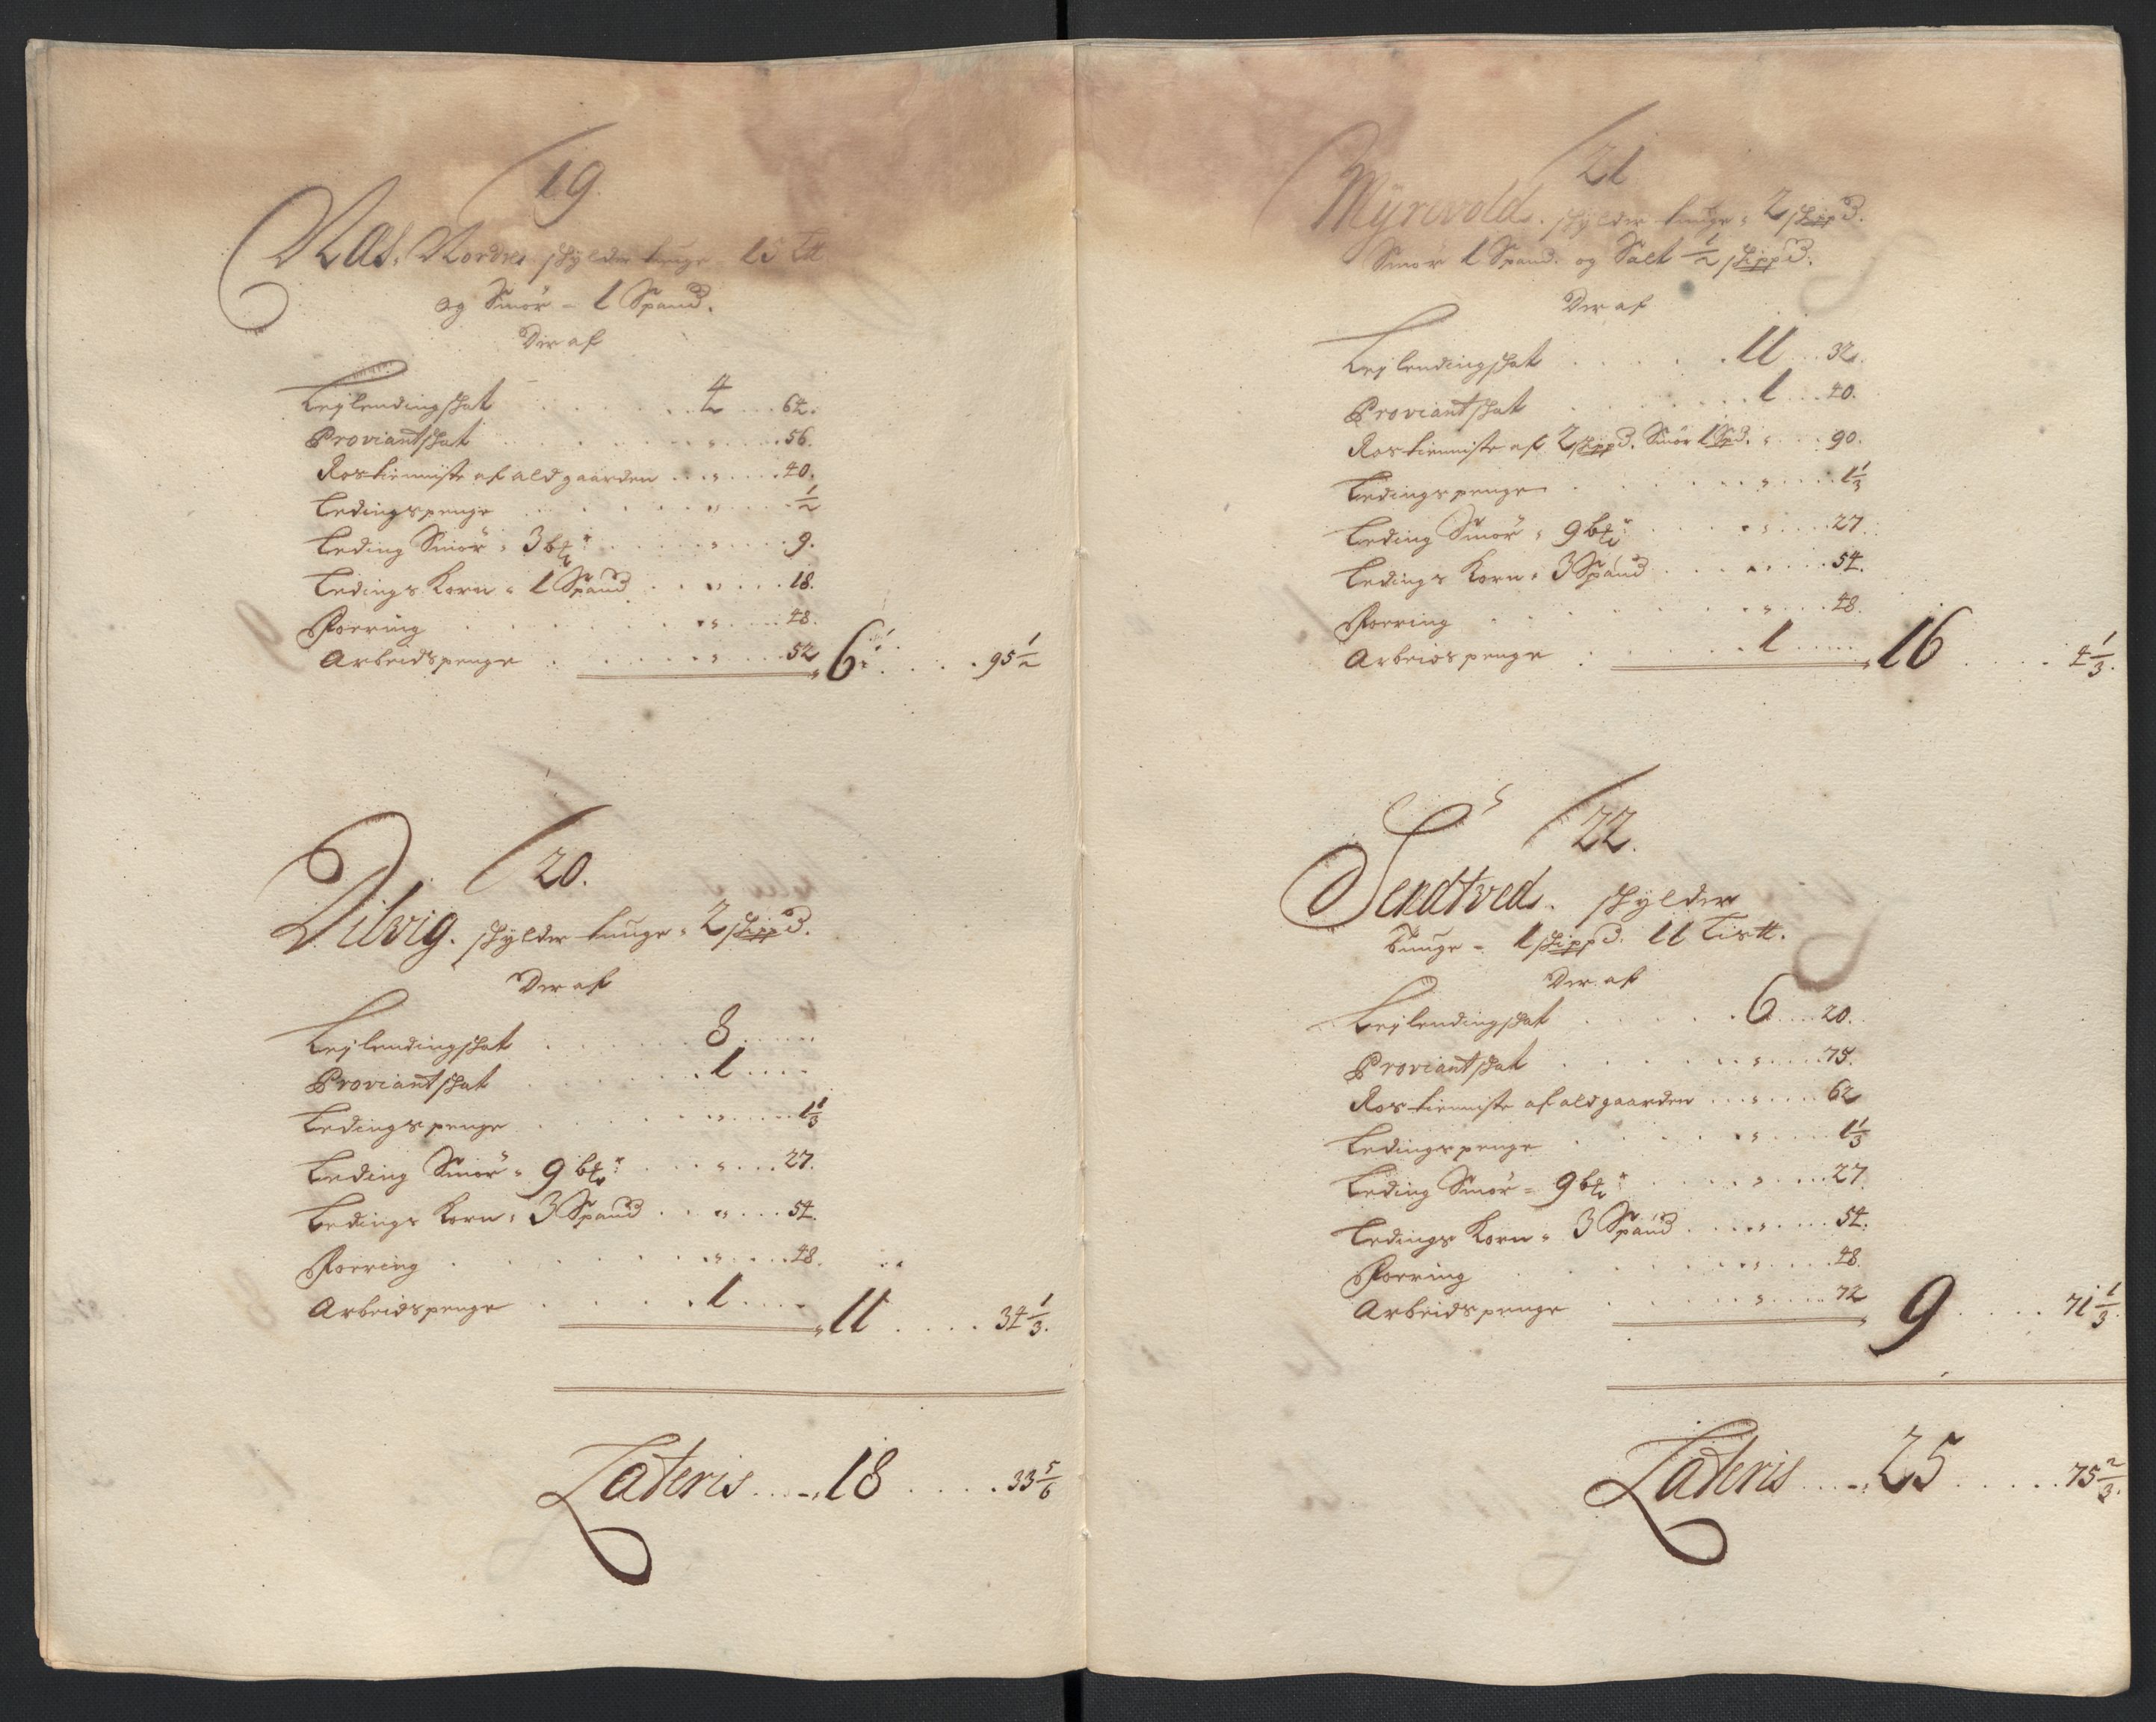 19.
Næs. Nordre skylder tunge 15 ℔
og Smør - 1 Spand.
Der af
Leylendingskat . . . . . 4 . . . 64.
Proviantskat . . . . . „ . . . 56.
Rostienniste af ald gaarden . . . „ . . . 40.
Ledingspenge . . . . . „ . . . ½
Leding Smør „ 3 btr . . . . „ . . . 9.
Ledings Korn „ 1 Spand . . . „ . . . 18.
Foering . . . . . „ . . . 48.
Arbeidspenge . . . . . „ . . . 52 „ 6 . . . . 95½
20.
Dilvig. skylder tunge „ 2 skippd.
Der af
Leylendingskat . . . . . 8 . . .
Proviantskat . . . . . 1 . . .
Ledingspenge . . . . . „ . . . 1⅓
Leding Smør „ 9 btr . . . „ . . . 27.
Ledings Korn „ 3 Spand . . . „ . . . 54.
Foering . . . . . „ . . . 48.
Arbeidspenge . . . . . 1 . . . „ 11 . . . . 34⅓.
Lateris . . . „ 18 . . . . 33⅚
21
Myrevold. skylder tunge „ 2 skippd.
Smør 1 Spand. og Salt ½ skippd.
Der af
Leylendingskat . . . . . 11 . . . 32.
Proviantskat . . . . . 1 . . . 40.
Rostienniste af 2 skippd. Smør 1 Spd. „ . . . 90.
Ledingspenge . . . . . „ . . . 1⅓
Leding Smør „ 9 btr . . . „ . . . 27.
Ledings Korn „ 3 Spand . . . „ . . . 54.
Foering . . . . . „ . . . 48.
Arbeidspenge . . . . . 1 . . . „ 16 . . . . 4⅓.
22.
Sendtved. skylder
tunge - 1 skippd. 11 Lis℔.
Der af
Leylendingskat . . . . . 6 . . . 20.
Proviantskat . . . . . „ . . . 75.
Rostienniste af ald gaarden . . . „ . . . 62
Ledingspenge . . . . . „ . . . 1⅓
Leding Smør - 9 btr . . . „ . . . 27
Ledings Korn „ 3 Spand . . . „ . . . 54.
Foering . . . . . „ . . . 48.
Arbeidspenge . . . . . „ . . . 72 „ 9 . . . . 71⅓.
Lateris . . . „ 25 . . . . 75⅔.